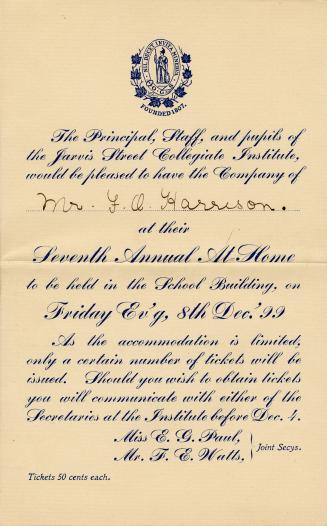 NIL DEEST INVITA MINERVA
FOUNDED 1807.
The Principal, Staff, and pupils of
the Jarvis Street Collegiate Institute,
would be pleased to have the Company of
Mr. F. A. Harrison.
at their
Seventh Annual At Home
to be held in the School Building, on
Friday Ev'g, 8th Dec. '99
As the accommodation is limited,
only a certain number of tickets will be
issued. Should you wish to obtain tickets
you will communicate with either of the
Secretaries at the Institute before Dec. 4.
Miss E. G. Paul,
Mr. F. E. Watts,
Joint Secys.
Tickets 50 cents each.